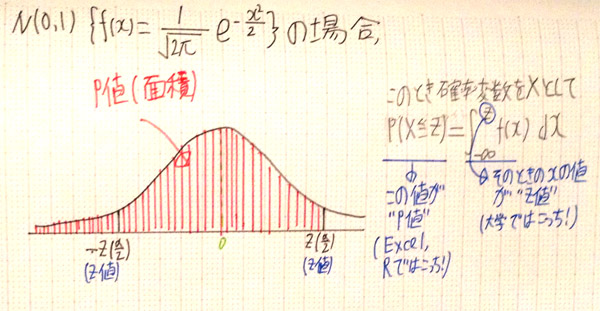 N(0,1) {f(x)= 1/√2π e^-x²/2} の場合,
P値(面積)
-Z(α/2)
(Z値)
0
Z(α/2)
(Z値)
このとき確率変数をXとして
P(X≦Z)=∫_-∞^Z f(x) dx
この値が
"P値"
(Excel,
Rではこっち!)
そのときのxの値
が"Z値"
(大学ではこっち!)